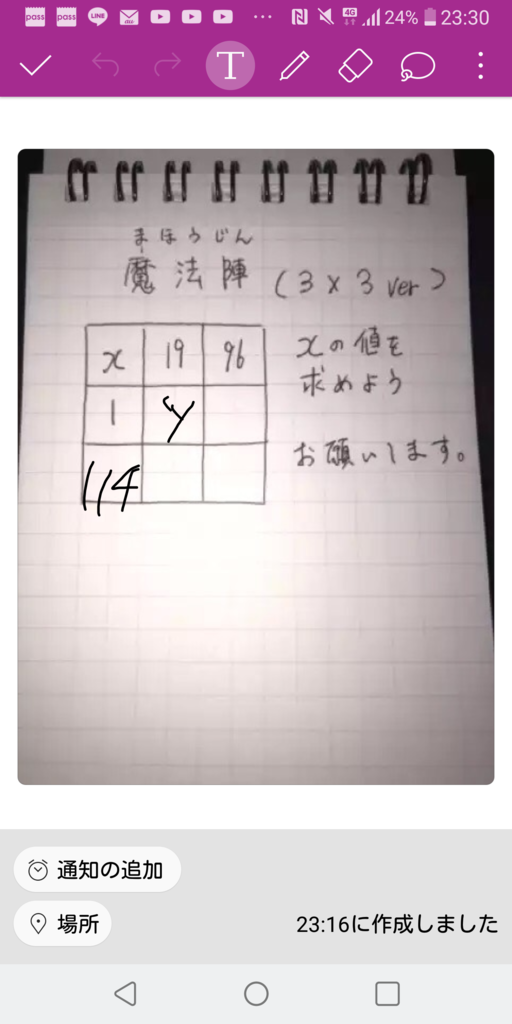 pass pass LINE 4G 24% 23:30
T
まほうじん
魔法陣 (3×3 ver)
x 19 96
1 y
114
xの値を
求めよう
お願いします。
通知の追加
場所
23:16に作成しました